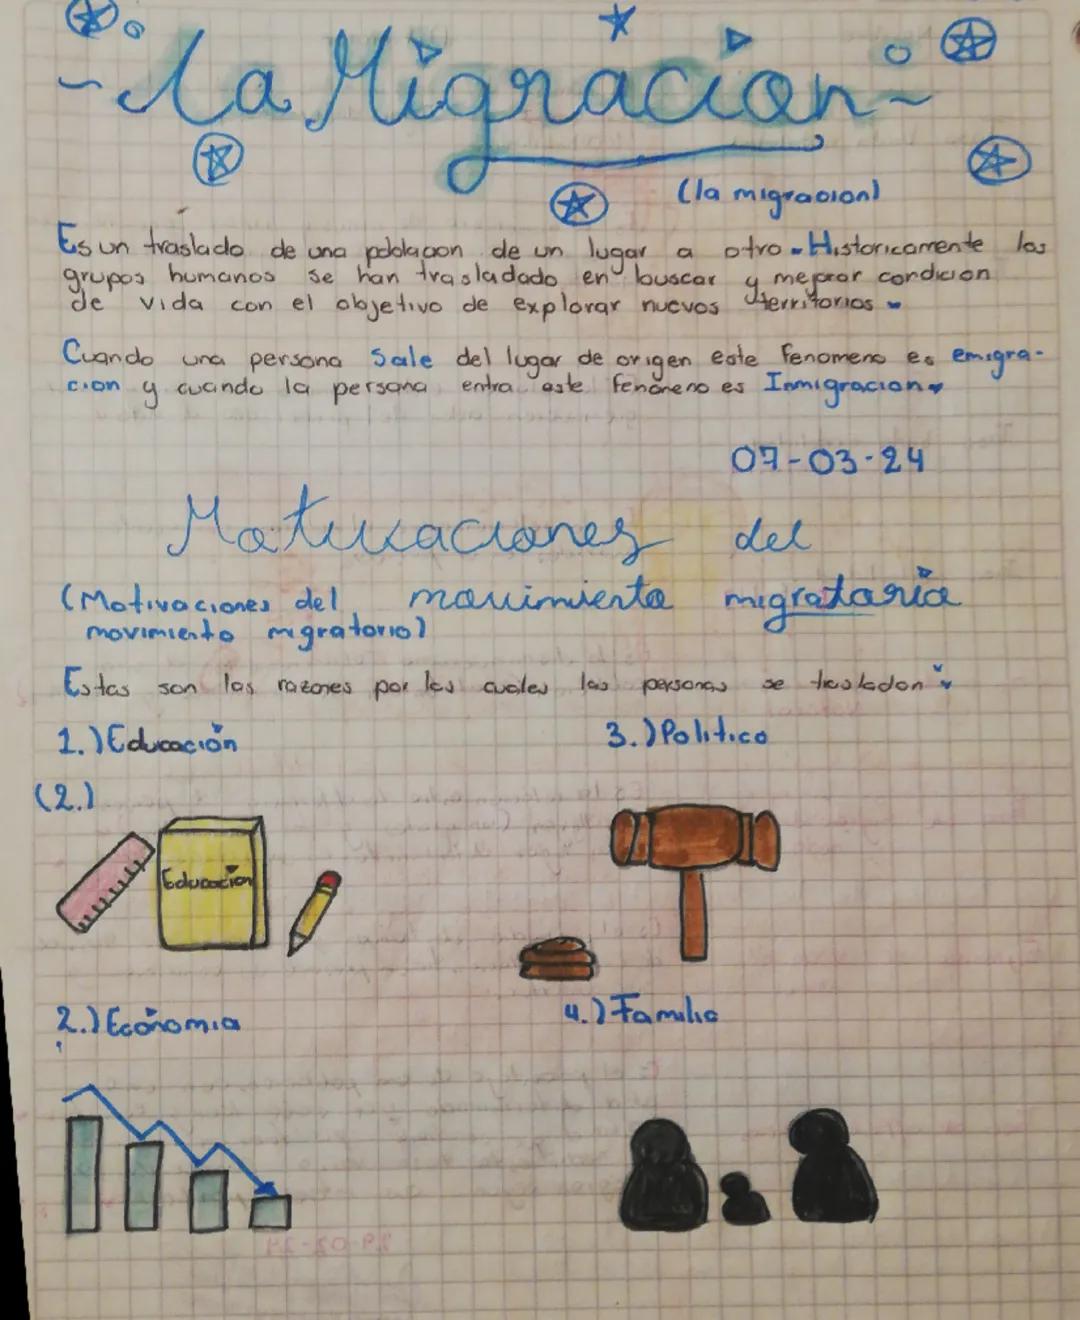 La Migracion
(la migracion)
Es un traslado de una poblacion de un lugar a otro. Historicamente los
grupos humanos se han trasladado en buscar y mejorar condicion
de vida con el objetivo de explorar nuevos territorios.
Cuando una persona Sale del lugar de origen este fenomeno es emigra-
cion y cuando la persona entra este fenomeno es Inmigracion.
07-03-24
Motivaciones del
movimiento migratorio
(Motivaciones del
movimiento migratorio)
Estas son las razones por las cuales las personas se trasladan
1.) Educación
(2.)
Educacion
2.) Economia
3.) Politico
4.) Familia